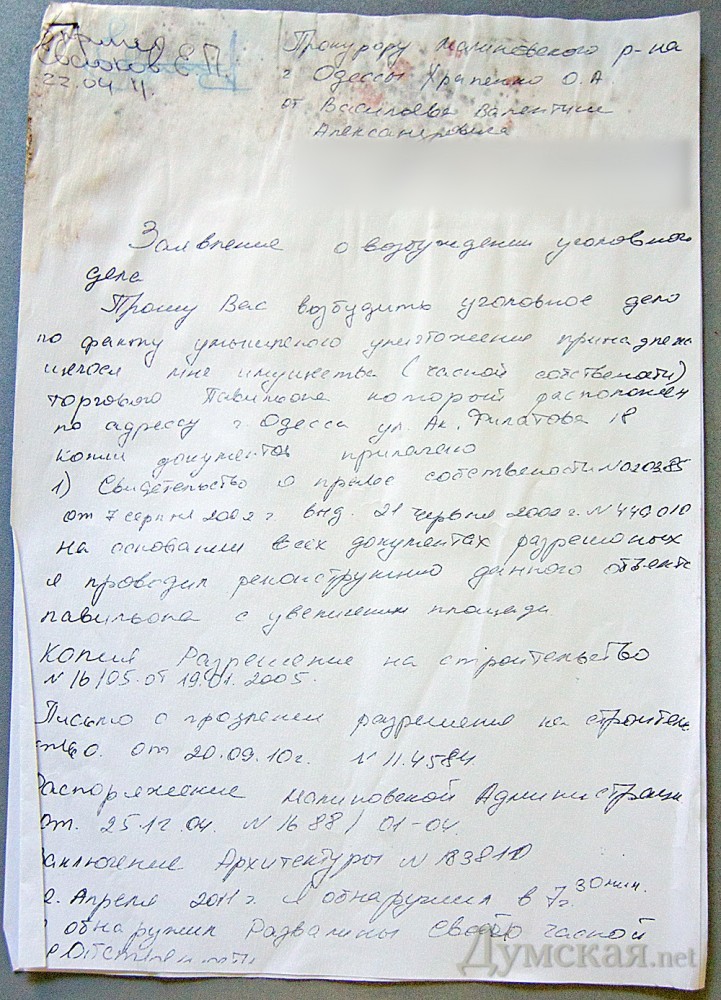 Принял
Евсюков Е.П.
22.04.11.
Прокурору Малиновского р-на
г Одессы Храпенко О.А
от Васильева Валентина
Александровича
Заявление о возбуждении уголовного
дела
Прошу Вас возбудить уголовное дело
по факту умышленого уничтожение принадлежа
щегося мне имущества (часной собствености)
торгового Павильона который расположен
по адрессу г. Одесса ул. Ак. Филатова 18
Копии документов прилагаю
1) Свидетельство о праве собствености N020385
от 7 серпня 2002 г. вид. 21 червня 2002 г. N 440010
на основании всех документах разрешоных
я проводил реконструкцию данного объекта
павильона с увеличением площади.
Копия Разрешение на строительство
N 16/05. от 19.01.2005.
Письмо о продлении разрешения на строитель
ство. от 20.09.10г. N 11.4584
Распоряжение Малиновской Администрации
от. 25.12.04. N 1688/01-04.
Заключение Архитектуры N
Апреля 2011 г. Я обнаружил в 7 г. 30 мин.
обнаружил Развалины своей часной
собствености
Думская.net